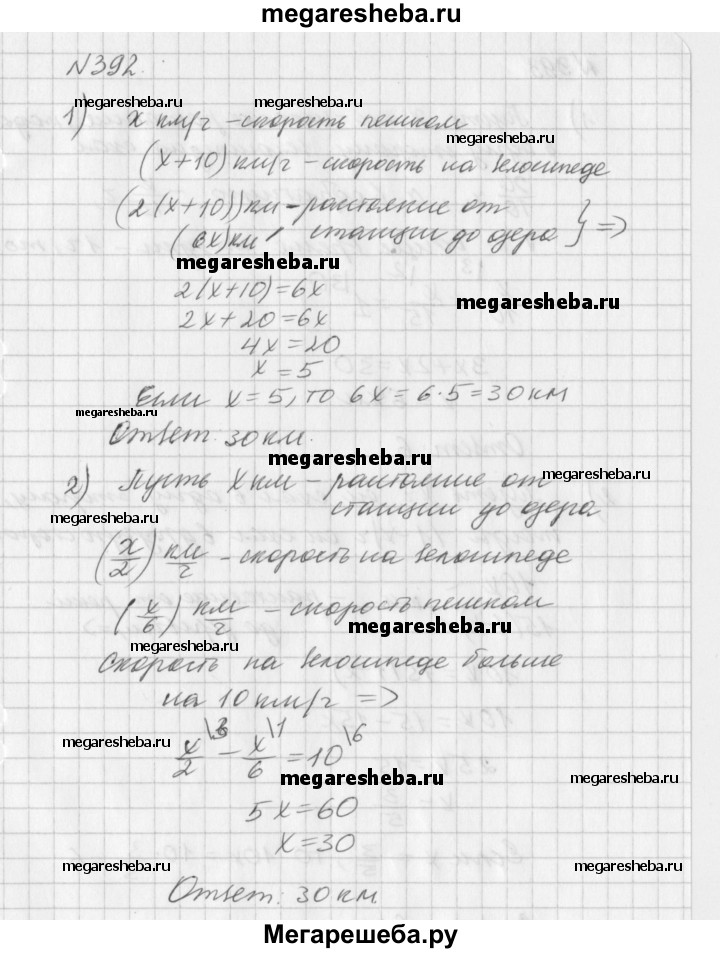 megaresheba.ru
N392.
megaresheba.ru megaresheba.ru
1) x км/ч – скорость пешком
megaresheba.ru
(x+10) км/ч – скорость на велосипеде
(2(x+10)) км – растояние от
(6x) км станции до озера } =>
megaresheba.ru
2(x+10)=6x
megaresheba.ru
2x+20=6x
4x=20
x=5
Если x=5, то 6x=6·5=30 км
megaresheba.ru
Ответ: 30 км.
megaresheba.ru
2) Пусть x км – растояние от
станции до озера
megaresheba.ru
(x/2) км/ч – скорость на велосипеде
(x/6) км/ч – скорость пешком
megaresheba.ru
megaresheba.ru
Скорость на велосипеде больше
на 10 км/ч =>
megaresheba.ru
x/2\3 – x/6\1 = 10\6
megaresheba.ru
5x=60
x=30
megaresheba.ru megaresheba.ru
Ответ: 30 км
Мегарешеба.ру